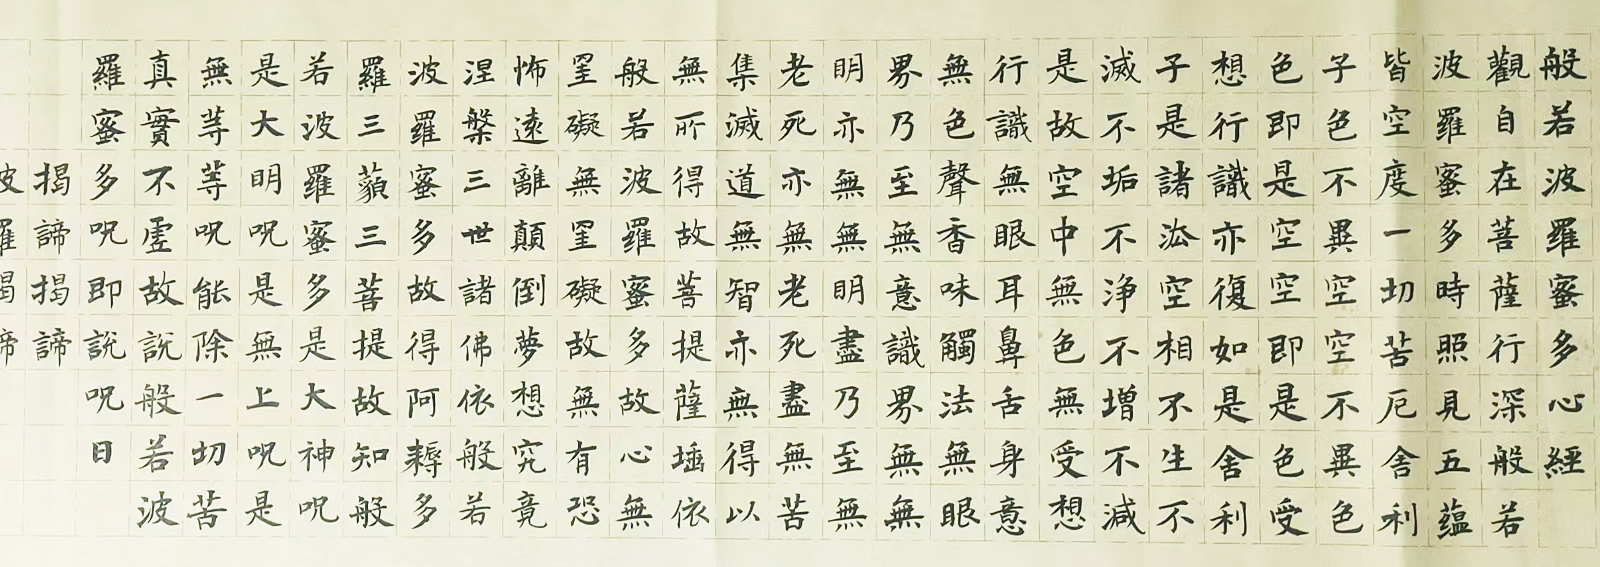 般若波羅蜜多心經
觀自在菩薩行深般若
波羅蜜多時照見五蕴
皆空度一切苦厄舍利
子色不異空空不異色
色即是空空即是色受
想行識亦復如是舍利
子是諸法空相不生不
滅不垢不净不增不減
是故空中無色無受想
行識無眼耳鼻舌身意
無色聲香味觸法無眼
界乃至無意識界無無
明亦無無明盡乃至無
老死亦無老死盡無苦
集滅道無智亦無得以
無所得故菩提薩埵依
般若波羅蜜多故心無
罣礙無罣礙故無有恐
怖遠離顛倒夢想究竟
涅槃三世諸佛依般若
波羅蜜多故得阿耨多
羅三藐三菩提故知般
若波羅蜜多是大神呪
是大明呪是無上呪是
無等等呪能除一切苦
真實不虛故說般若波
羅蜜多呪即說呪曰
揭諦揭諦
波羅揭諦